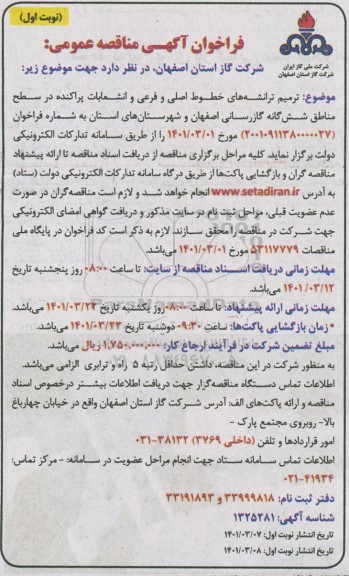 (نوبت اول)
شرکت ملی گاز ایران
شرکت گاز استان اصفهان
فراخوان آگهی مناقصه عمومی:
شرکت گاز استان اصفهان، در نظر دارد جهت موضوع زیر:
موضوع: ترمیم ترانشه‌های خطوط اصلی و فرعی و انشعابات پراکنده در سطح
مناطق شش‌گانه گازرسانی اصفهان و شهرستان‌های استان به شماره فراخوان
(۲۰۰۱۰۹۱۱۳۸۰۰۰۰۲۷) مورخ ۱۴۰۱/۰۳/۰۱ را از طریق سامانه تدارکات الکترونیکی
دولت برگزار نماید. کلیه مراحل برگزاری مناقصه از دریافت اسناد مناقصه تا ارائه پیشنهاد
مناقصه گران و بازگشایی پاکت‌ها از طریق درگاه سامانه تدارکات الکترونیکی دولت (ستاد)
به آدرس www.setadiran.ir انجام خواهد شد و لازم است مناقصه‌گران در صورت
عدم عضویت قبلی، مراحل ثبت نام در سایت مذکور و دریافت گواهی امضای الکترونیکی
جهت شرکت در مناقصه را محقق سازند. لازم به ذکر است کد فراخوان در پایگاه ملی
مناقصات ۵۳۱۱۷۷۷۹ مورخ ۱۴۰۱/۰۳/۰۱ می‌باشد.
مهلت زمانی دریافت اسناد مناقصه از سایت: تا ساعت ۰۸:۰۰ روز پنجشنبه تاریخ
۱۴۰۱/۰۳/۱۲ می‌باشد.
مهلت زمانی ارائه پیشنهاد: تا ساعت ۰۸:۰۰ روز یکشنبه تاریخ ۱۴۰۱/۰۳/۲۲ می‌باشد.
*زمان بازگشایی پاکت‌ها: ساعت ۰۹:۳۰ دوشنبه تاریخ ۱۴۰۱/۰۳/۲۳ می‌باشد.
مبلغ تضمین شرکت در فرآیند ارجاع کار: ۱.۷۵۰.۰۰۰.۰۰۰ ریال می‌باشد.
به منظور شرکت در این مناقصه، داشتن حداقل رتبه ۵ راه و ترابری الزامی می‌باشد.
اطلاعات تماس دستگاه مناقصه‌گزار جهت دریافت اطلاعات بیشتر درخصوص اسناد
مناقصه و ارائه پاکت‌های الف: آدرس شرکت گاز استان اصفهان واقع در خیابان چهارباغ
بالا- روبروی مجتمع پارک -
امور قراردادها و تلفن (داخلی ۳۷۶۹) ۳۸۱۳۲-۰۳۱
اطلاعات تماس سامانه ستاد جهت انجام مراحل عضویت در سامانه: - مرکز تماس:
۰۲۱-۴۱۹۳۴
دفتر ثبت نام: ۳۳۹۹۹۸۱۸ و ۳۳۱۹۱۸۹۳
شناسه آگهی: ۱۳۲۵۲۸۱
تاریخ انتشار نوبت اول: ۱۴۰۱/۰۳/۰۷
تاریخ انتشار نوبت اول: ۱۴۰۱/۰۳/۰۸